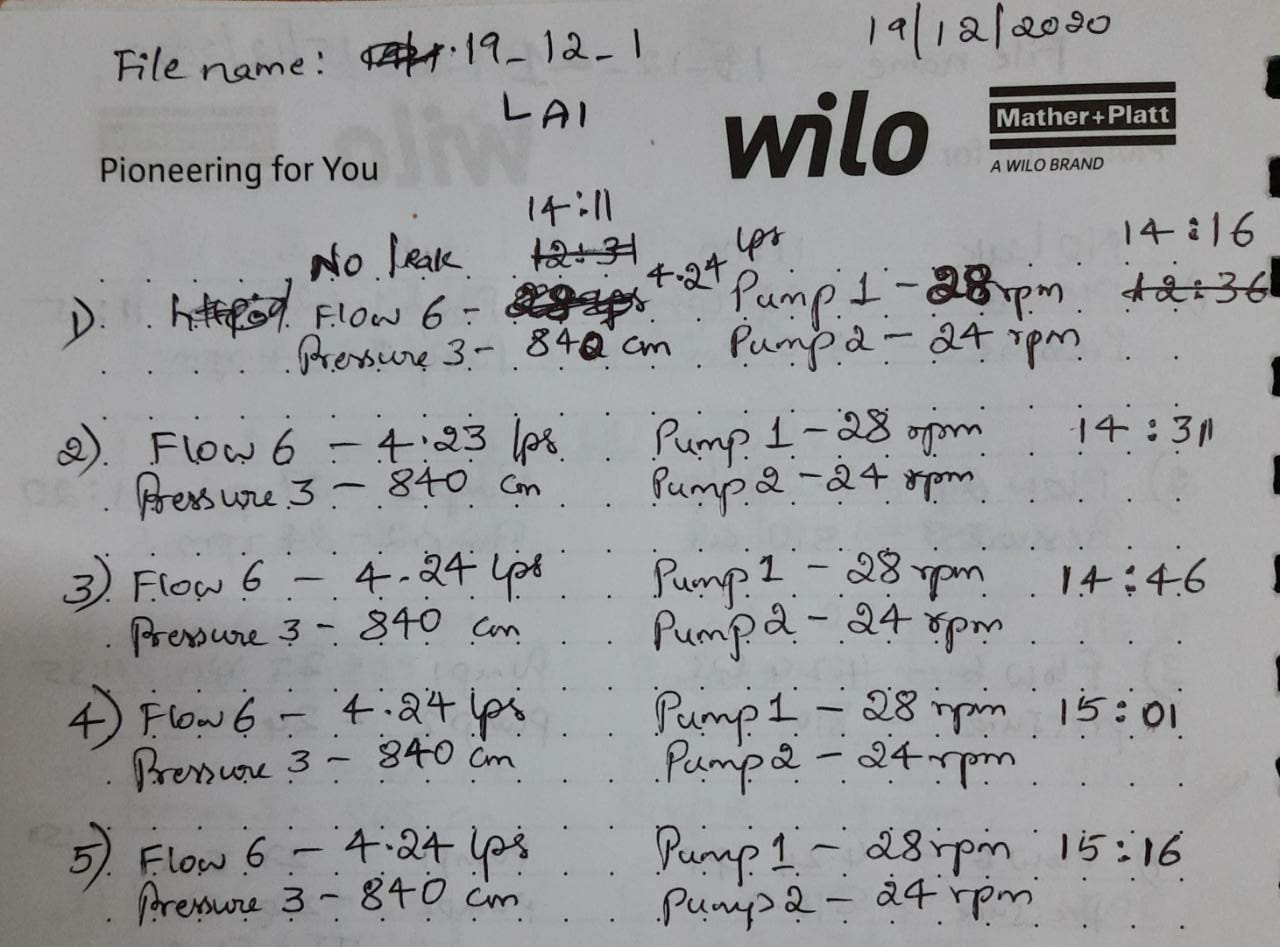 File name: 19_12_1
19/12/2020
LAI
wilo
Mather+Platt
A WILO BRAND
Pioneering for You
14:11
No leak 12:31 lps 14:16
1) Flow 6 - 4.24 Pump 1 - 28 rpm 12:36
Pressure 3 - 840 cm Pump 2 - 24 rpm
2) Flow 6 - 4.23 lps Pump 1 - 28 rpm 14:31
Pressure 3 - 840 cm Pump 2 - 24 rpm
3) Flow 6 - 4.24 lps Pump 1 - 28 rpm 14:46
Pressure 3 - 840 cm Pump 2 - 24 rpm
4) Flow 6 - 4.24 lps Pump 1 - 28 rpm 15:01
Pressure 3 - 840 cm Pump 2 - 24 rpm
5) Flow 6 - 4.24 lps Pump 1 - 28 rpm 15:16
Pressure 3 - 840 cm Pump 2 - 24 rpm